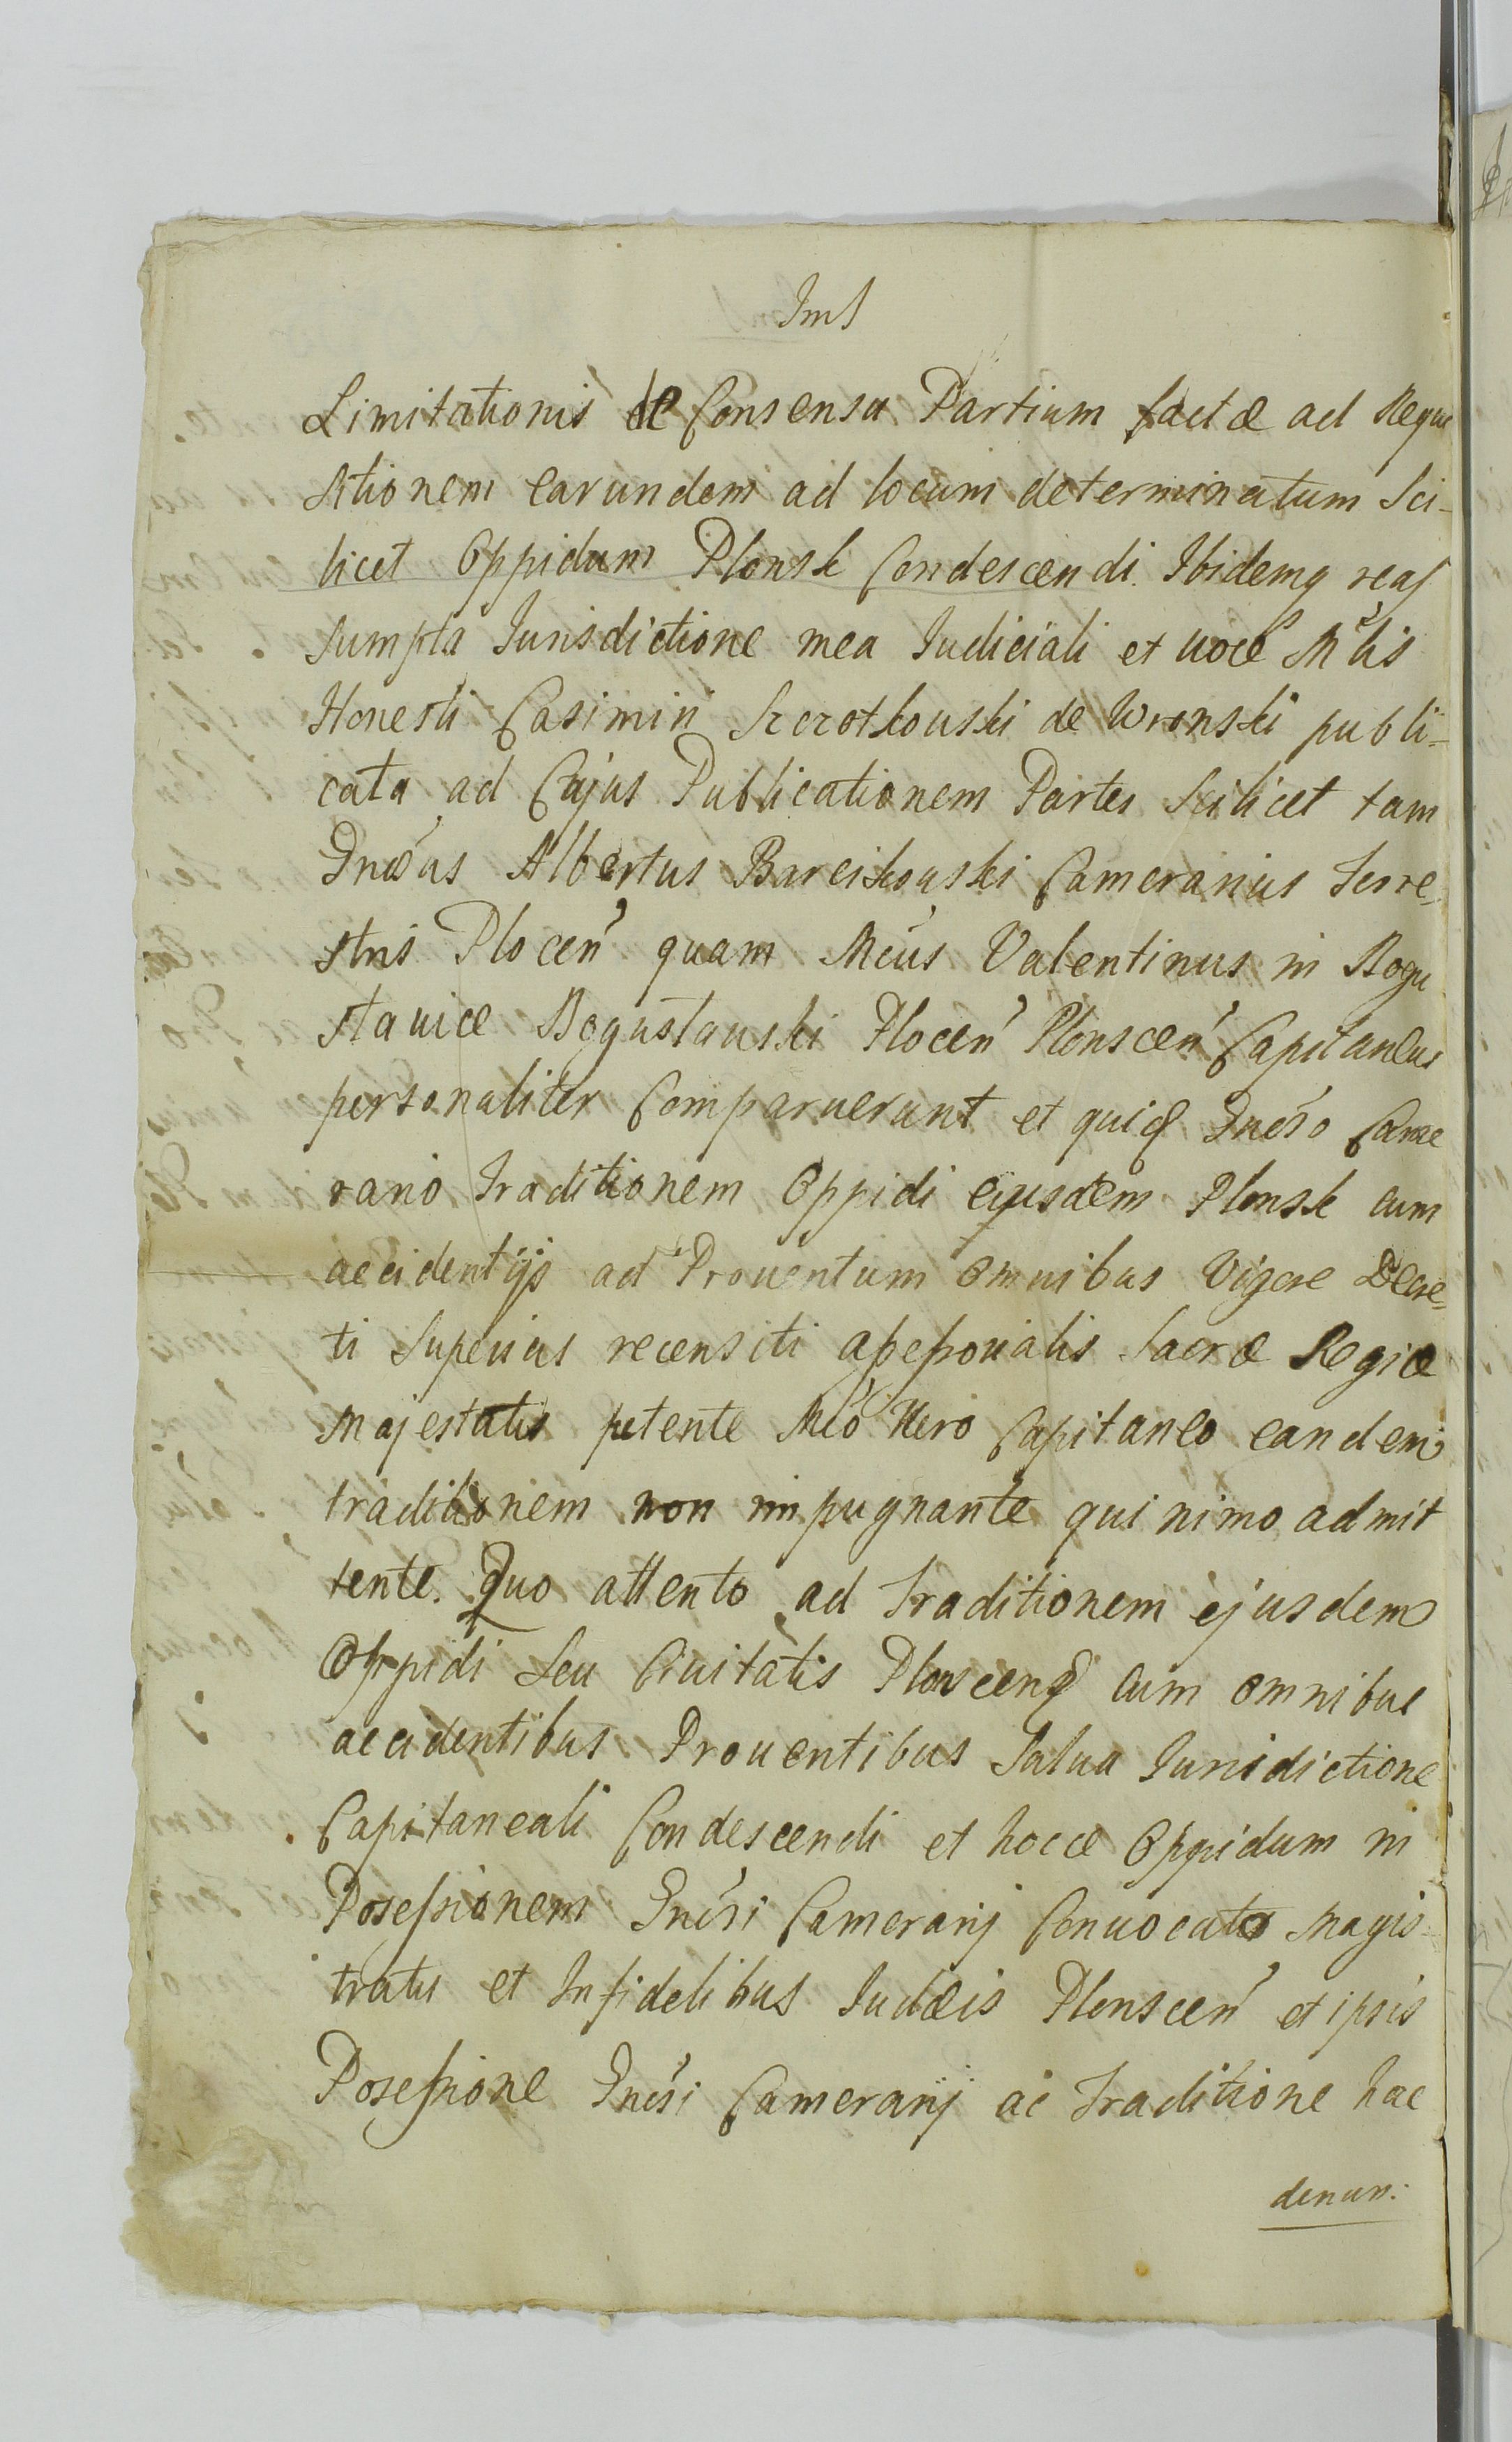 Limitationis de Consensu Partium factæ ad Requi
sitionem earundem ad locum determinatum Sci-
licet Oppidum Plonsk Condescendi. Ibidemq reas
sumpta Jurisdictione mea Judiciali et uoce Mlis
Honesti Casimiri de Wronski publi-
cata ad Cujus Publicationem Partes Scilicet tam
Albertus Barcikouski Camerarius Terre-
stris Plocen quam Mcus Valentinus in Bogu
stauice Bogustauski Plocen Plonscen Capitaneus
personaliter Comparuerunt et Came
rario Traditionem Oppidi ejusdem Plonsk cum
accidentijs ad Prouentum omnibus Vigore Decre-
ti Superius recensiti aßeßorialis Sacræ Regiæ
Majestatis petente Mco Uero Capitaneo eandem
traditionem non impugnante quinimo admit
tente. Quo attento ad Traditionem ejusdem
Oppidi Seu Ciuitatis cum omnibus
accidentibus Prouentibus Salua Jurisdictione
Capitaneali Condescendi et hocce Oppidum in
Poseßionem Gnesi Camerarij Conuocato Magis-
tratu et Infidelibus Judæis Plonscen et ipsis
Poseßione Gnesi Camerarij ac Traditione hac
denun: